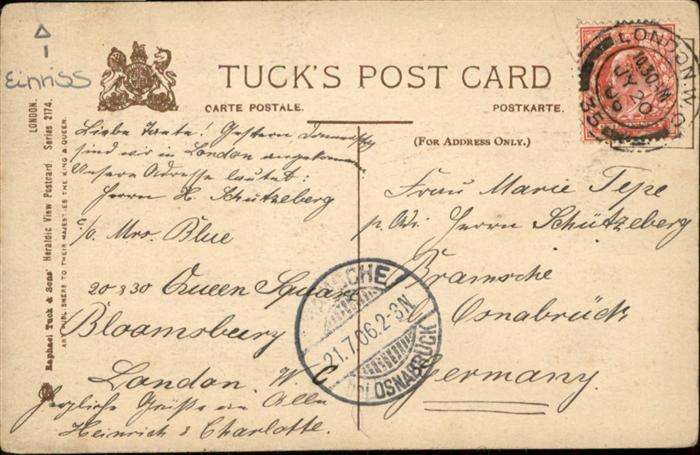 Einriss
LONDON.
Raphael Tuck & Sons' Heraldic View Postcard Series 2174.
ART PUBLISHERS TO THEIR MAJESTIES THE KING & QUEEN.
TUCK'S POST CARD
CARTE POSTALE.
POSTKARTE.
(FOR ADDRESS ONLY.)
LONDON. W.C.
10.30PM
JY 20
06
35
Liebe Tante! Gestern Donnerstag
sind wir in London angekommen
Unsere Adresse lautet:
Herrn H. Schützeberg
c/o Mrs. Blue
20 & 30 Queen Square
Bloomsbury
London. W. C
Herzliche Grüße an Alle
Heinrich & Charlotte.
Frau Marie Tepe
p. Adr. Herrn Schützeberg
Bramsche
Osnabrück
Germany
BRAMSCHE
21.7.06.2-3N
OSNABRÜCK